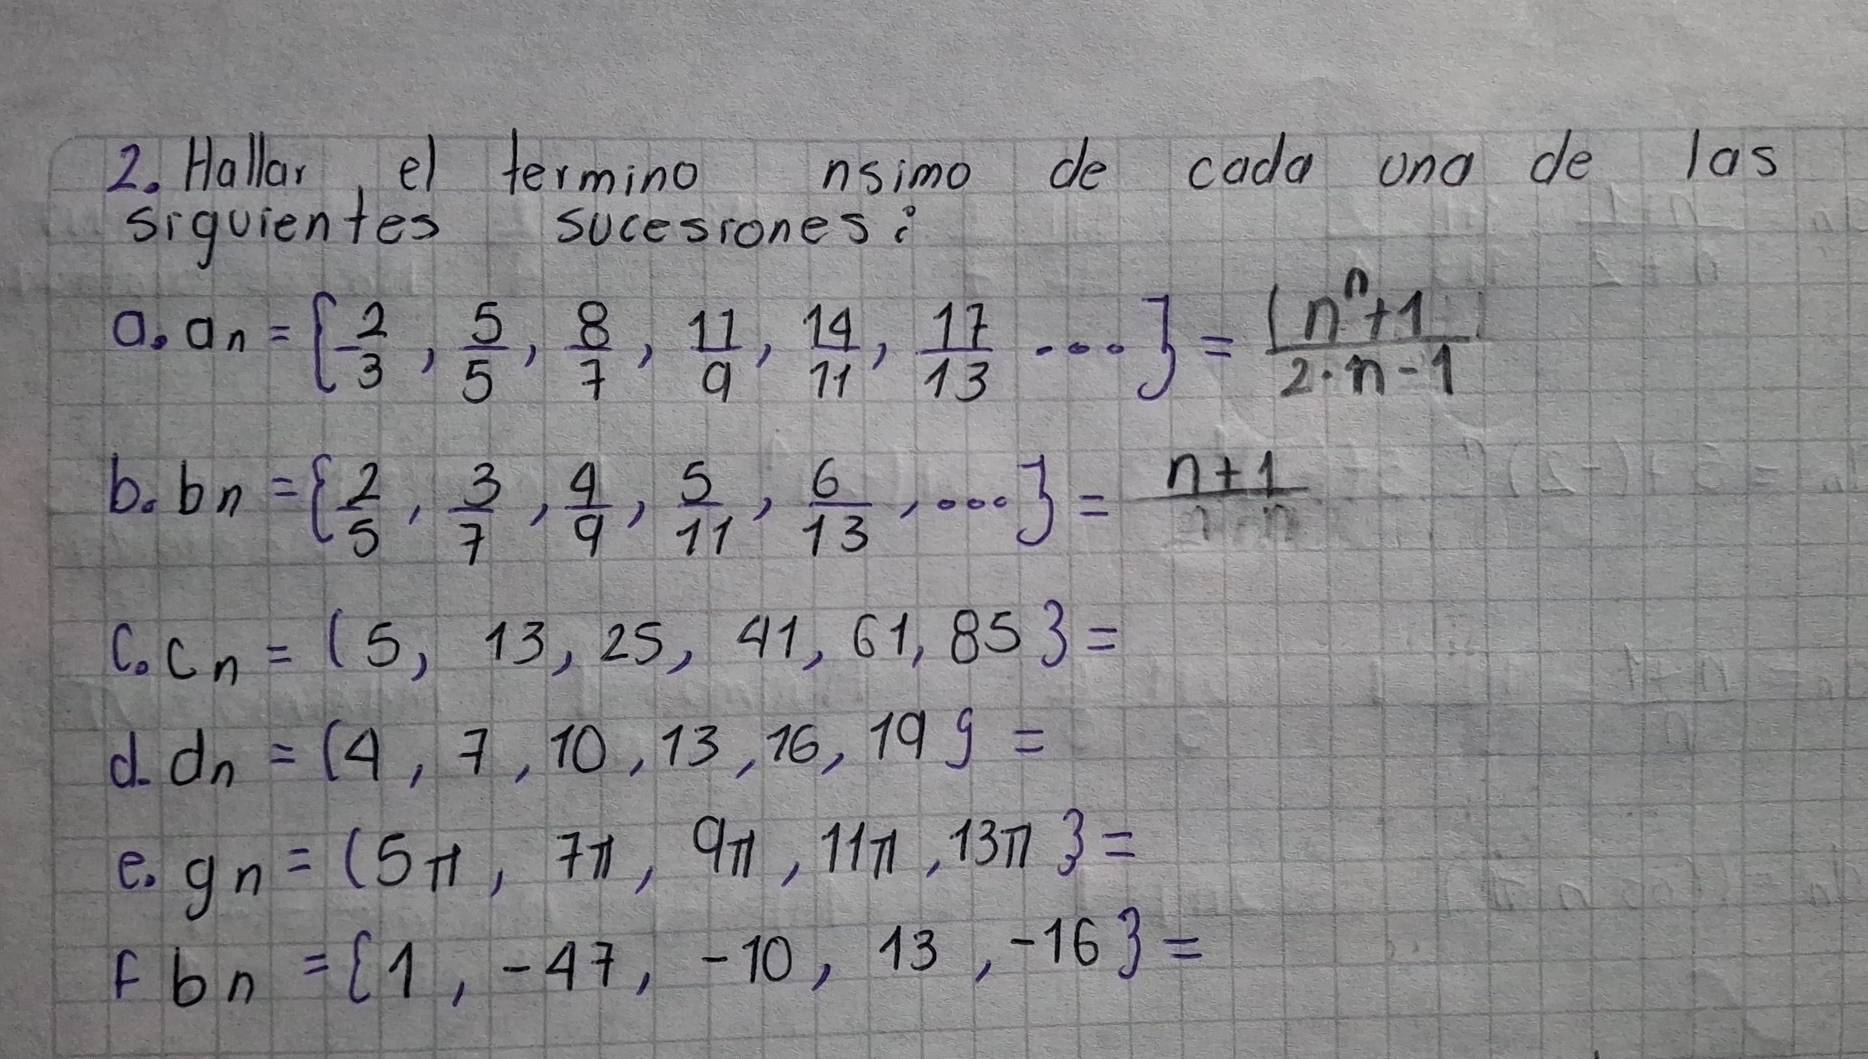 2. Hallar el termino nsimo de cada una de las
siguientes sucesiones:
a. an = { 2/3 , 5/5 , 8/7 , 11/9 , 14/11 , 17/13 .... } = (n^n+1)/(2·n-1)
b. bn = { 2/5 , 3/7 , 4/9 , 5/11 , 6/13 , .... } = n+1
c. cn = ( 5, 13, 25, 41, 61, 85 } =
d. dn = (4, 7, 10, 13, 16, 19 } =
e. gn = (5π, 7π, 9π, 11π, 13π } =
f bn = { 1, -47, -10, 13, -16 } =